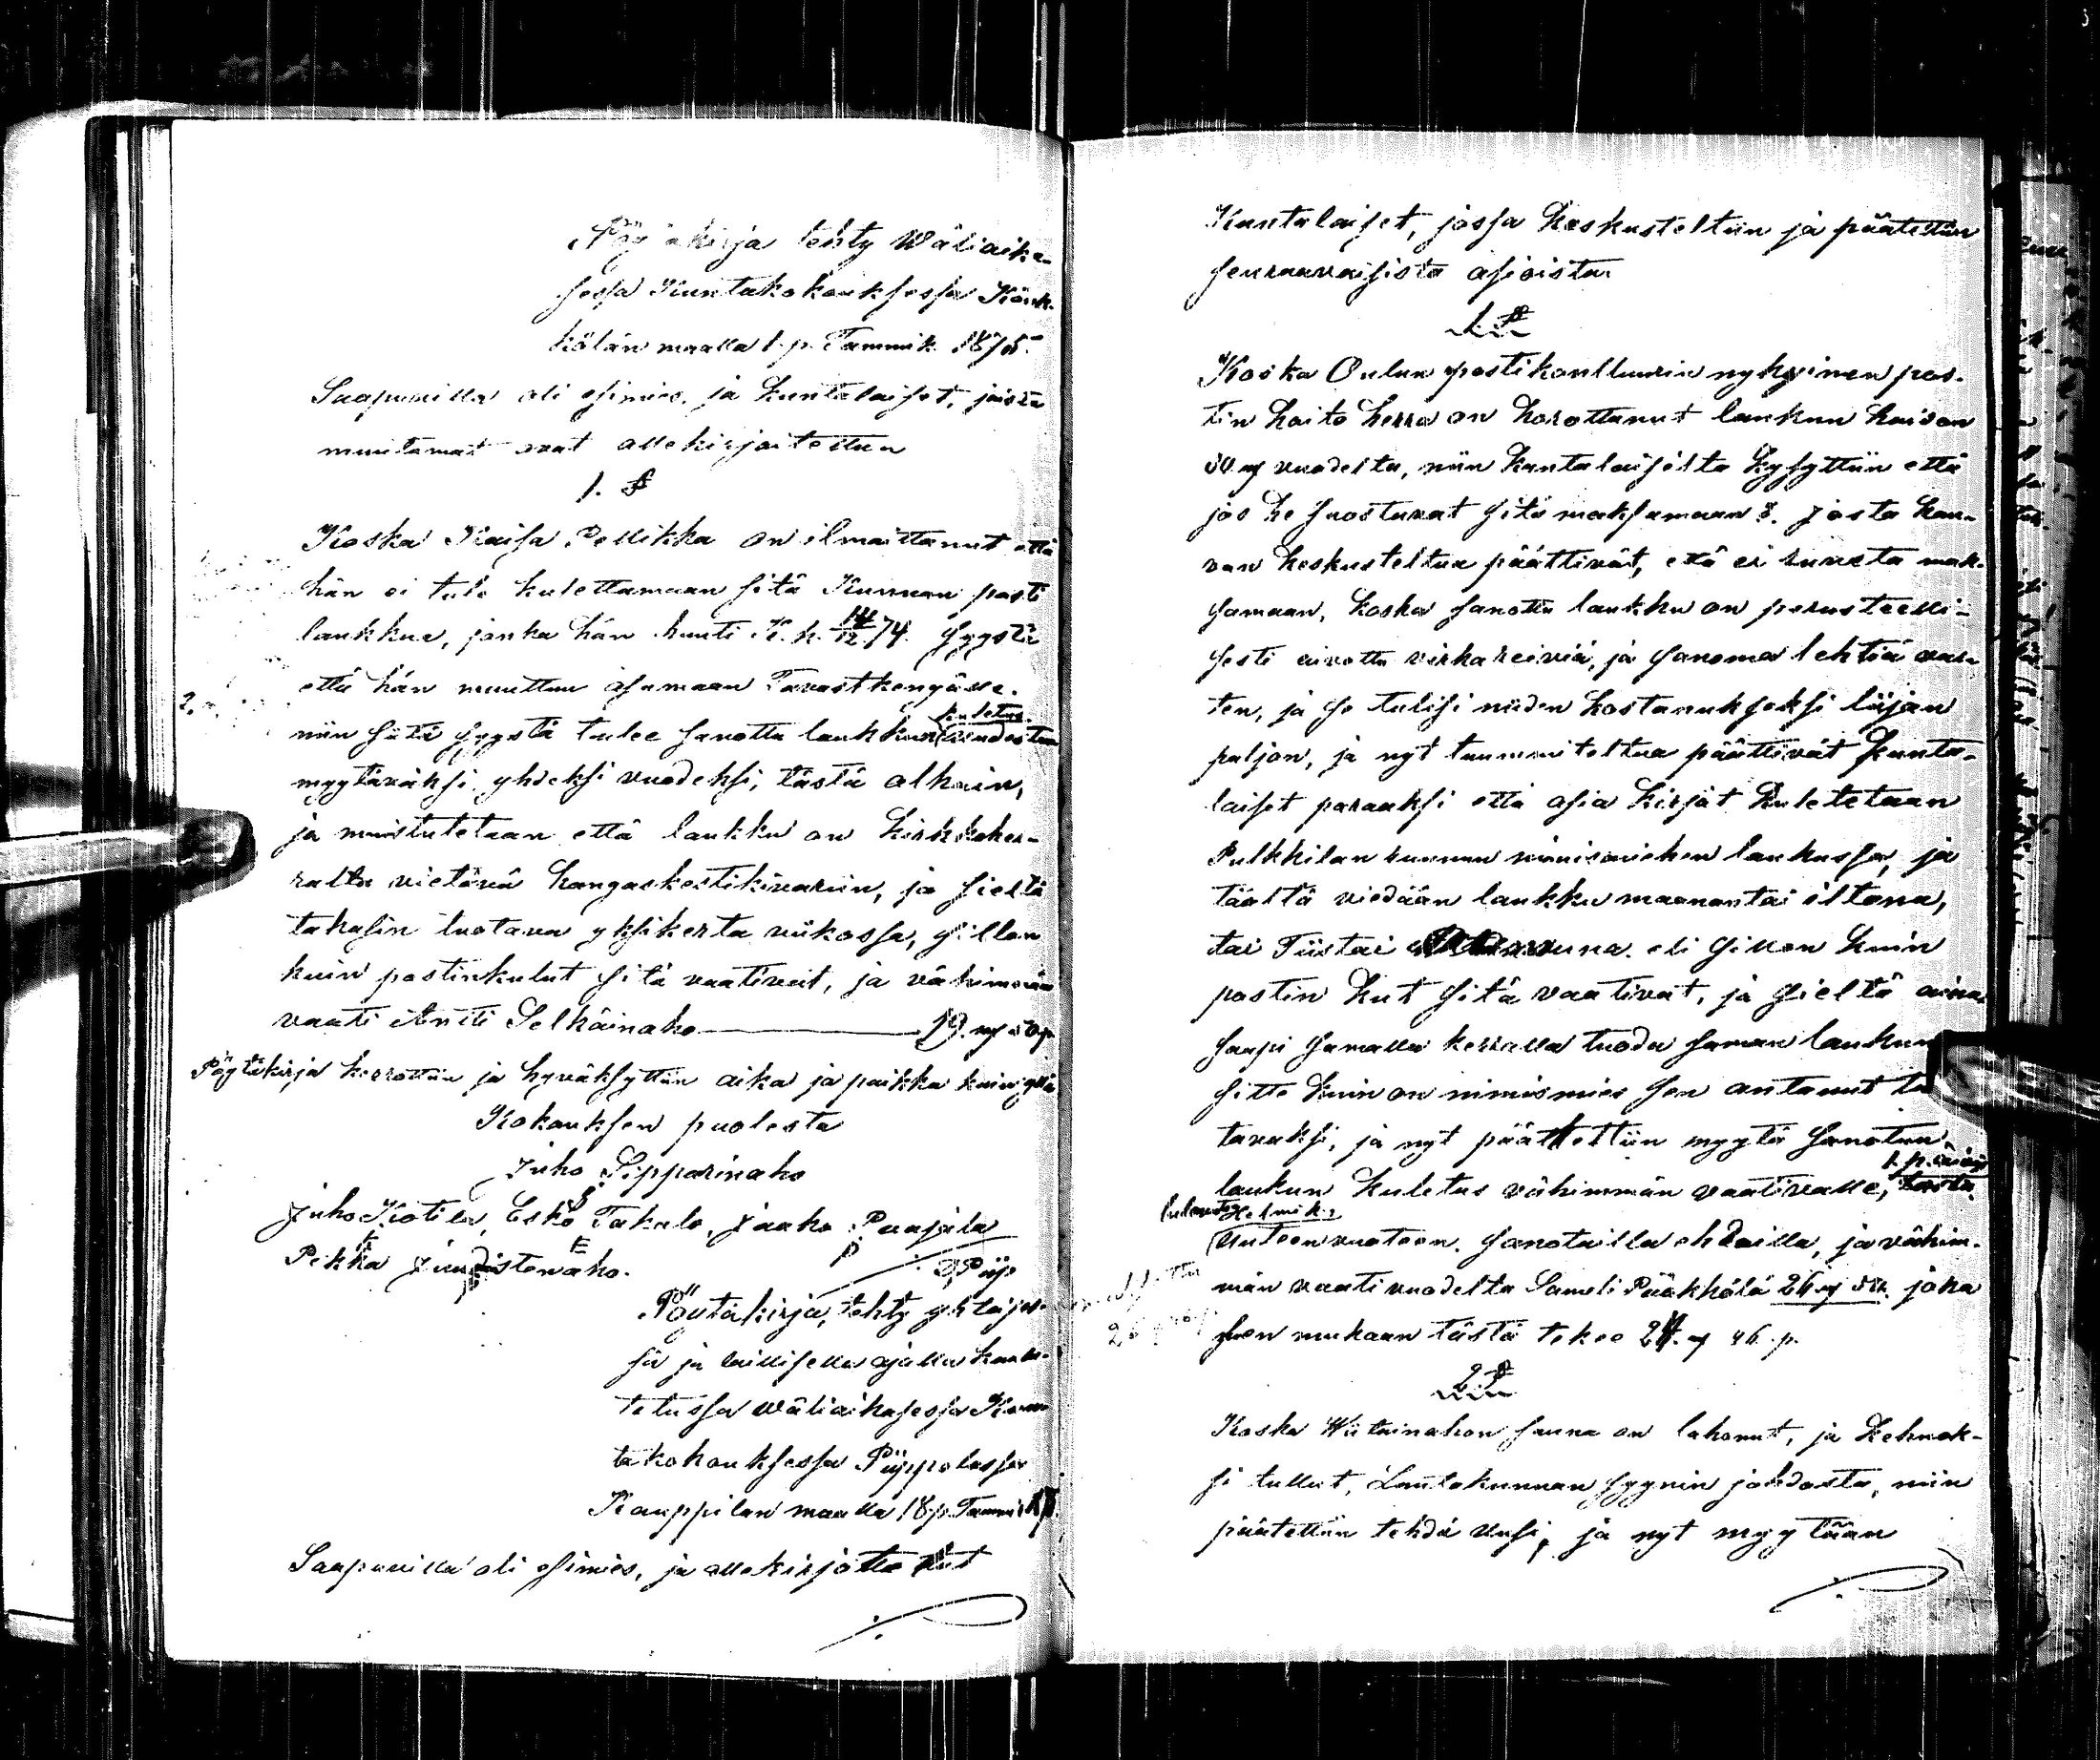 Pöytäkirja tehty Wäliaika-
sessa Kuntakokouksessa Könk-
kölän maalla 1 p. Tammik. 1875.
Saapuvilla oli esimies, ja kuntalaiset, joista
muutamat ovat allekirjoitettuu
1. §
Koska Kaisa Pellikka on ilmoittanut että
hän ei tule kulettamaan sitä Kunnan posti
laukkua, jonka hän huuti K. k. 14/12 74. syystä
että hän muuttuu asumaan Tavastkengälle.
niin siitä syystä tulee sanottu laukkun kuletus
myytäväksi yhdeksi vuodeksi, tästä alkain,
ja muistutetaan että laukku on Kirkkoher-
ralta vietävä kangaskestikivariin, ja sieltä
takasin tuotava yksikerta viikossa, sillon
kuin postinkulut sitä vaativat, ja vähimmän
vaati Antti Selkäinaho 19. my 50 p.
Pöytäkirja kerrottiin ja hyväksyttiin aika ja paikka kuin yllä
Kokouksen puolesta
Juho Sipparinaho
Juho Kotila, Esko Takalo, Jaako Paajala
Pekka
Pöytäkirja, tehty yhteises-
sä ja laillisella ajalla kuulu-
tetussa wäliaikasessa Kun-
takokouksessa Piippolassa
Kauppilan maalla 18 p. Tammik
Saapuvilla oli esimies, ja allekirjotta
Kuntalaiset, jossa keskusteltiin ja päätettiin
seuraavaisista asioista
1. §
Koska Oulun postikonttuurin nykyinen pos-
tin hoito herra on korottanut laukun hoidon
my vuodelta, niin kuntalaisilta kysyttiin että
jos he suostuvat sitä maksamaan?. Josta kau-
van keskusteltua päättivät, että ei ruveta mak-
samaan, koska sanottu laukku on perusteelli-
sesti aivottu virkareiviä, ja sanoma lehtiä var-
ten, ja se tulisi niiden kostanukseksi liijan
paljon, ja nyt tuumiteltua päättivät kunta-
laiset paraaksi että asia kirjat kuletetaan
Pulkkilan kunnan nimismiehen laukussa, ja
täältä viedään laukku maanantai iltona,
tai Tiistai eli sillon kuin
postin kut sitä vaativat, ja sieltä aina
saapi samalla kerralla tuoda saman laukun
sitte kuin on nimismies sen antanut
tavaksi, ja nyt päätettiin myytä sanotun
laukun kuletus vähimmän vaativalle, 1. p. päivästä
Helmik:
Uuteenvuoteen. sanotuilla ehdoilla, ja vähim-
män vaati vuodelta Sameli Pääkkölä 26 my joka
sen mukaan tästä tekee 24. my 46. p.
2. §
Koska Wiitainahon sauna on lahonut, ja kehnok-
si tullut, Lautakunnan syynin johdosta, niin
päätettiin tehdä uusi, ja nyt myytään